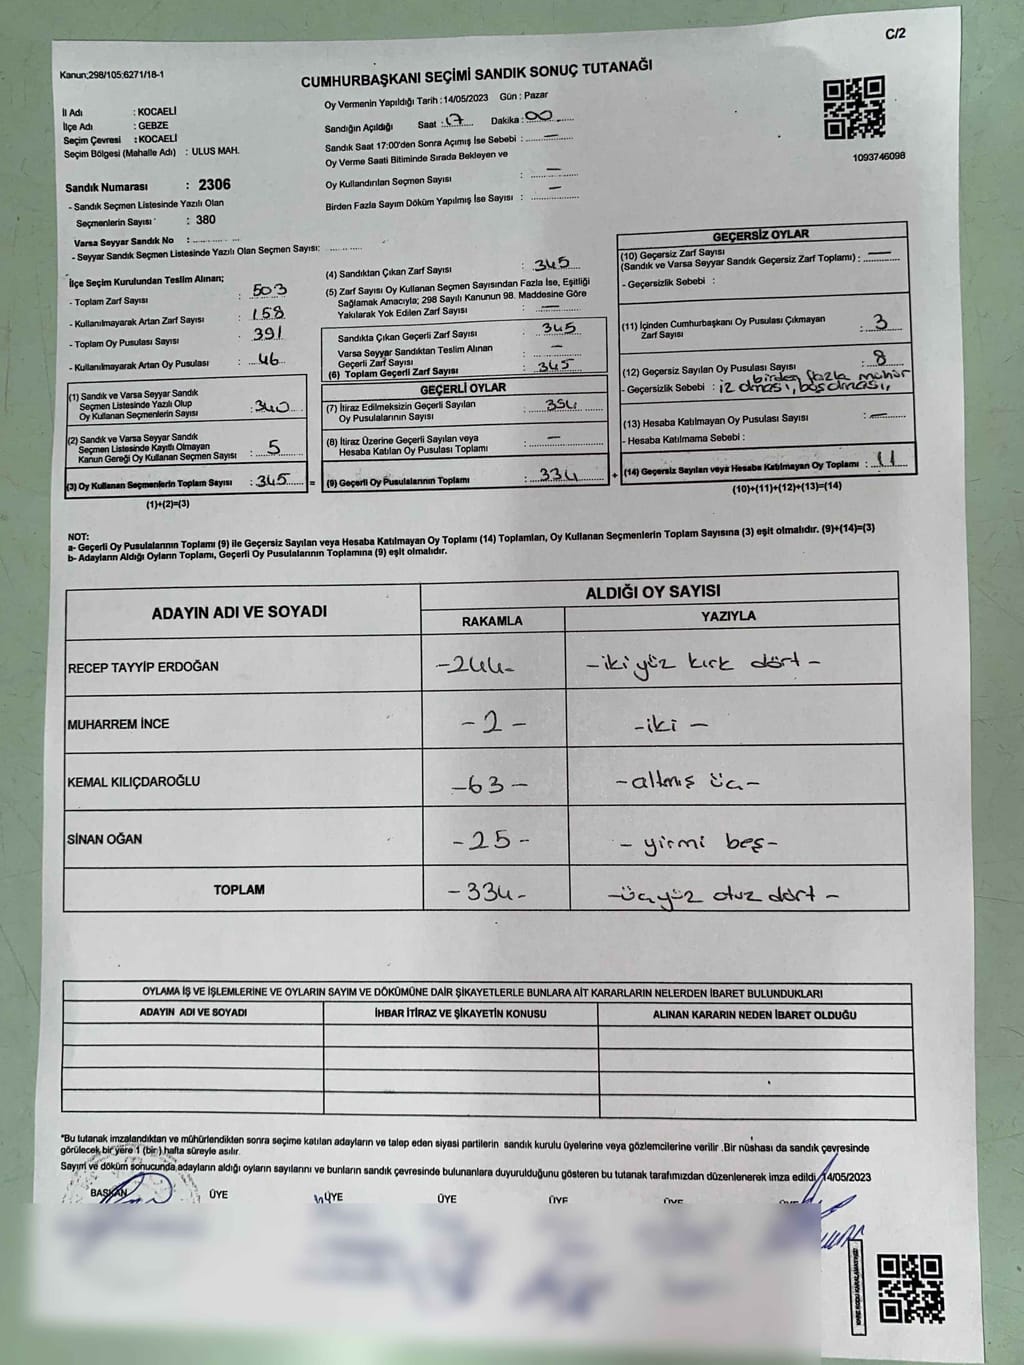 C/2
Kanun;298/105:6271/18-1
CUMHURBAŞKANI SEÇİMİ SANDIK SONUÇ TUTANAĞI
İl Adı : KOCAELİ
İlçe Adı : GEBZE
Seçim Çevresi : KOCAELİ
Seçim Bölgesi (Mahalle Adı) : ULUS MAH.
Oy Vermenin Yapıldığı Tarih :14/05/2023 Gün : Pazar
Sandığın Açıldığı Saat :17 Dakika :00
Sandık Saat 17:00'den Sonra Açımış İse Sebebi : —
Oy Verme Saati Bitiminde Sırada Bekleyen ve
Oy Kullandırılan Seçmen Sayısı : —
Birden Fazla Sayım Döküm Yapılmış İse Sayısı : —
1093746098
Sandık Numarası : 2306
- Sandık Seçmen Listesinde Yazılı Olan
Seçmenlerin Sayısı : 380
Varsa Seyyar Sandık No :
- Seyyar Sandık Seçmen Listesinde Yazılı Olan Seçmen Sayısı:
İlçe Seçim Kurulundan Teslim Alınan;
- Toplam Zarf Sayısı : 503
- Kullanılmayarak Artan Zarf Sayısı : 158
- Toplam Oy Pusulası Sayısı : 391
- Kullanılmayarak Artan Oy Pusulası : 46
(1) Sandık ve Varsa Seyyar Sandık
Seçmen Listesinde Yazılı Olup
Oy Kullanan Seçmenlerin Sayısı : 340
(2) Sandık ve Varsa Seyyar Sandık
Seçmen Listesinde Kayıtlı Olmayan
Kanun Gereği Oy Kullanan Seçmen Sayısı : 5
(3) Oy Kullanan Seçmenlerin Toplam Sayısı : 345 =
(1)+(2)=(3)
(4) Sandıktan Çıkan Zarf Sayısı : 345
(5) Zarf Sayısı Oy Kullanan Seçmen Sayısından Fazla İse, Eşitliği
Sağlamak Amacıyla; 298 Sayılı Kanunun 98. Maddesine Göre
Yakılarak Yok Edilen Zarf Sayısı : —
Sandıkta Çıkan Geçerli Zarf Sayısı : 345
Varsa Seyyar Sandıktan Teslim Alınan
Geçerli Zarf Sayısı : —
(6) Toplam Geçerli Zarf Sayısı : 345
GEÇERLİ OYLAR
(7) İtiraz Edilmeksizin Geçerli Sayılan
Oy Pusulalarının Sayısı :
(8) İtiraz Üzerine Geçerli Sayılan veya
Hesaba Katılan Oy Pusulası Toplamı : —
(9) Geçerli Oy Pusulalarının Toplamı : 334 +
GEÇERSİZ OYLAR
(10) Geçersiz Zarf Sayısı
(Sandık ve Varsa Seyyar Sandık Geçersiz Zarf Toplamı) : —
- Geçersizlik Sebebi :
(11) İçinden Cumhurbaşkanı Oy Pusulası Çıkmayan
Zarf Sayısı : 3
(12) Geçersiz Sayılan Oy Pusulası Sayısı : 8
birden fazla mühür
- Geçersizlik Sebebi : iz olması, boş olması,
(13) Hesaba Katılmayan Oy Pusulası Sayısı : —
- Hesaba Katılmama Sebebi :
(14) Geçersiz Sayılan veya Hesaba Katılmayan Oy Toplamı : 11
(10)+(11)+(12)+(13)=(14)
NOT:
a- Geçerli Oy Pusulalarının Toplamı (9) ile Geçersiz Sayılan veya Hesaba Katılmayan Oy Toplamı (14) Toplamları, Oy Kullanan Seçmenlerin Toplam Sayısına (3) eşit olmalıdır. (9)+(14)=(3)
b- Adayların Aldığı Oyların Toplamı, Geçerli Oy Pusulalarının Toplamına (9) eşit olmalıdır.
ADAYIN ADI VE SOYADI
ALDIĞI OY SAYISI
RAKAMLA YAZIYLA
RECEP TAYYİP ERDOĞAN -244- -iki yüz kırk dört -
MUHARREM İNCE -2- -iki -
KEMAL KILIÇDAROĞLU -63- -altmış üç-
SİNAN OĞAN -25- - yirmi beş-
TOPLAM -334- -üçyüz otuz dört -
OYLAMA İŞ VE İŞLEMLERİNE VE OYLARIN SAYIM VE DÖKÜMÜNE DAİR ŞİKAYETLERLE BUNLARA AİT KARARLARIN NELERDEN İBARET BULUNDUKLARI
ADAYIN ADI VE SOYADI İHBAR İTİRAZ VE ŞİKAYETİN KONUSU ALINAN KARARIN NEDEN İBARET OLDUĞU
*Bu tutanak imzalandıktan ve mühürlendikten sonra seçime katılan adayların ve talep eden siyasi partilerin sandık kurulu üyelerine veya gözlemcilerine verilir .Bir nüshası da sandık çevresinde
görülecek bir yere 1 (bir) hafta süreyle asılır.
Sayım ve döküm sonucunda adayların aldığı oyların sayılarını ve bunların sandık çevresinde bulunanlara duyurulduğunu gösteren bu tutanak tarafımızdan düzenlenerek imza edildi. 14/05/2023
BAŞKAN ÜYE ÜYE ÜYE ÜYE ÜYE